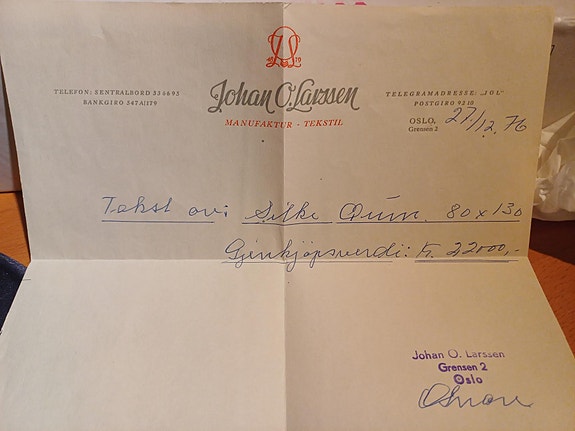 18 70
TELEFON: SENTRALBORD 33 46 93
BANKGIRO 547A1179
Johan O. Larssen
MANUFAKTUR · TEKSTIL
TELEGRAMADRESSE: „JOL"
POSTGIRO 92 10
OSLO, 27/12. 76
Grensen 2
Takst av: Silke Qum. 80 x 130
Gjenkjøpsverdi: Kr. 22000,-
Johan O. Larssen
Grensen 2
Oslo